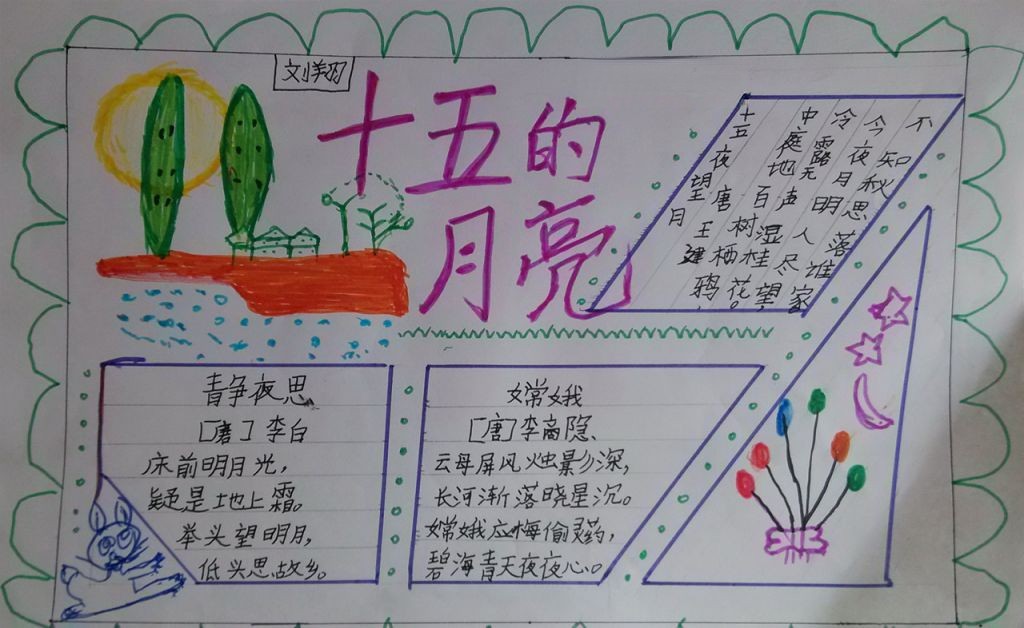 刘翔羽
十五的
月亮
十五夜望月
唐王建
中庭地百树栖鸦,
冷露无声湿桂花。
今夜月明人尽望,
不知秋思落谁家
静夜思
[唐]李白
床前明月光,
疑是地上霜。
举头望明月,
低头思故乡。
嫦娥
[唐]李商隐、
云母屏风烛影深,
长河渐落晓星沉。
嫦娥应悔偷灵药,
碧海青天夜夜心。